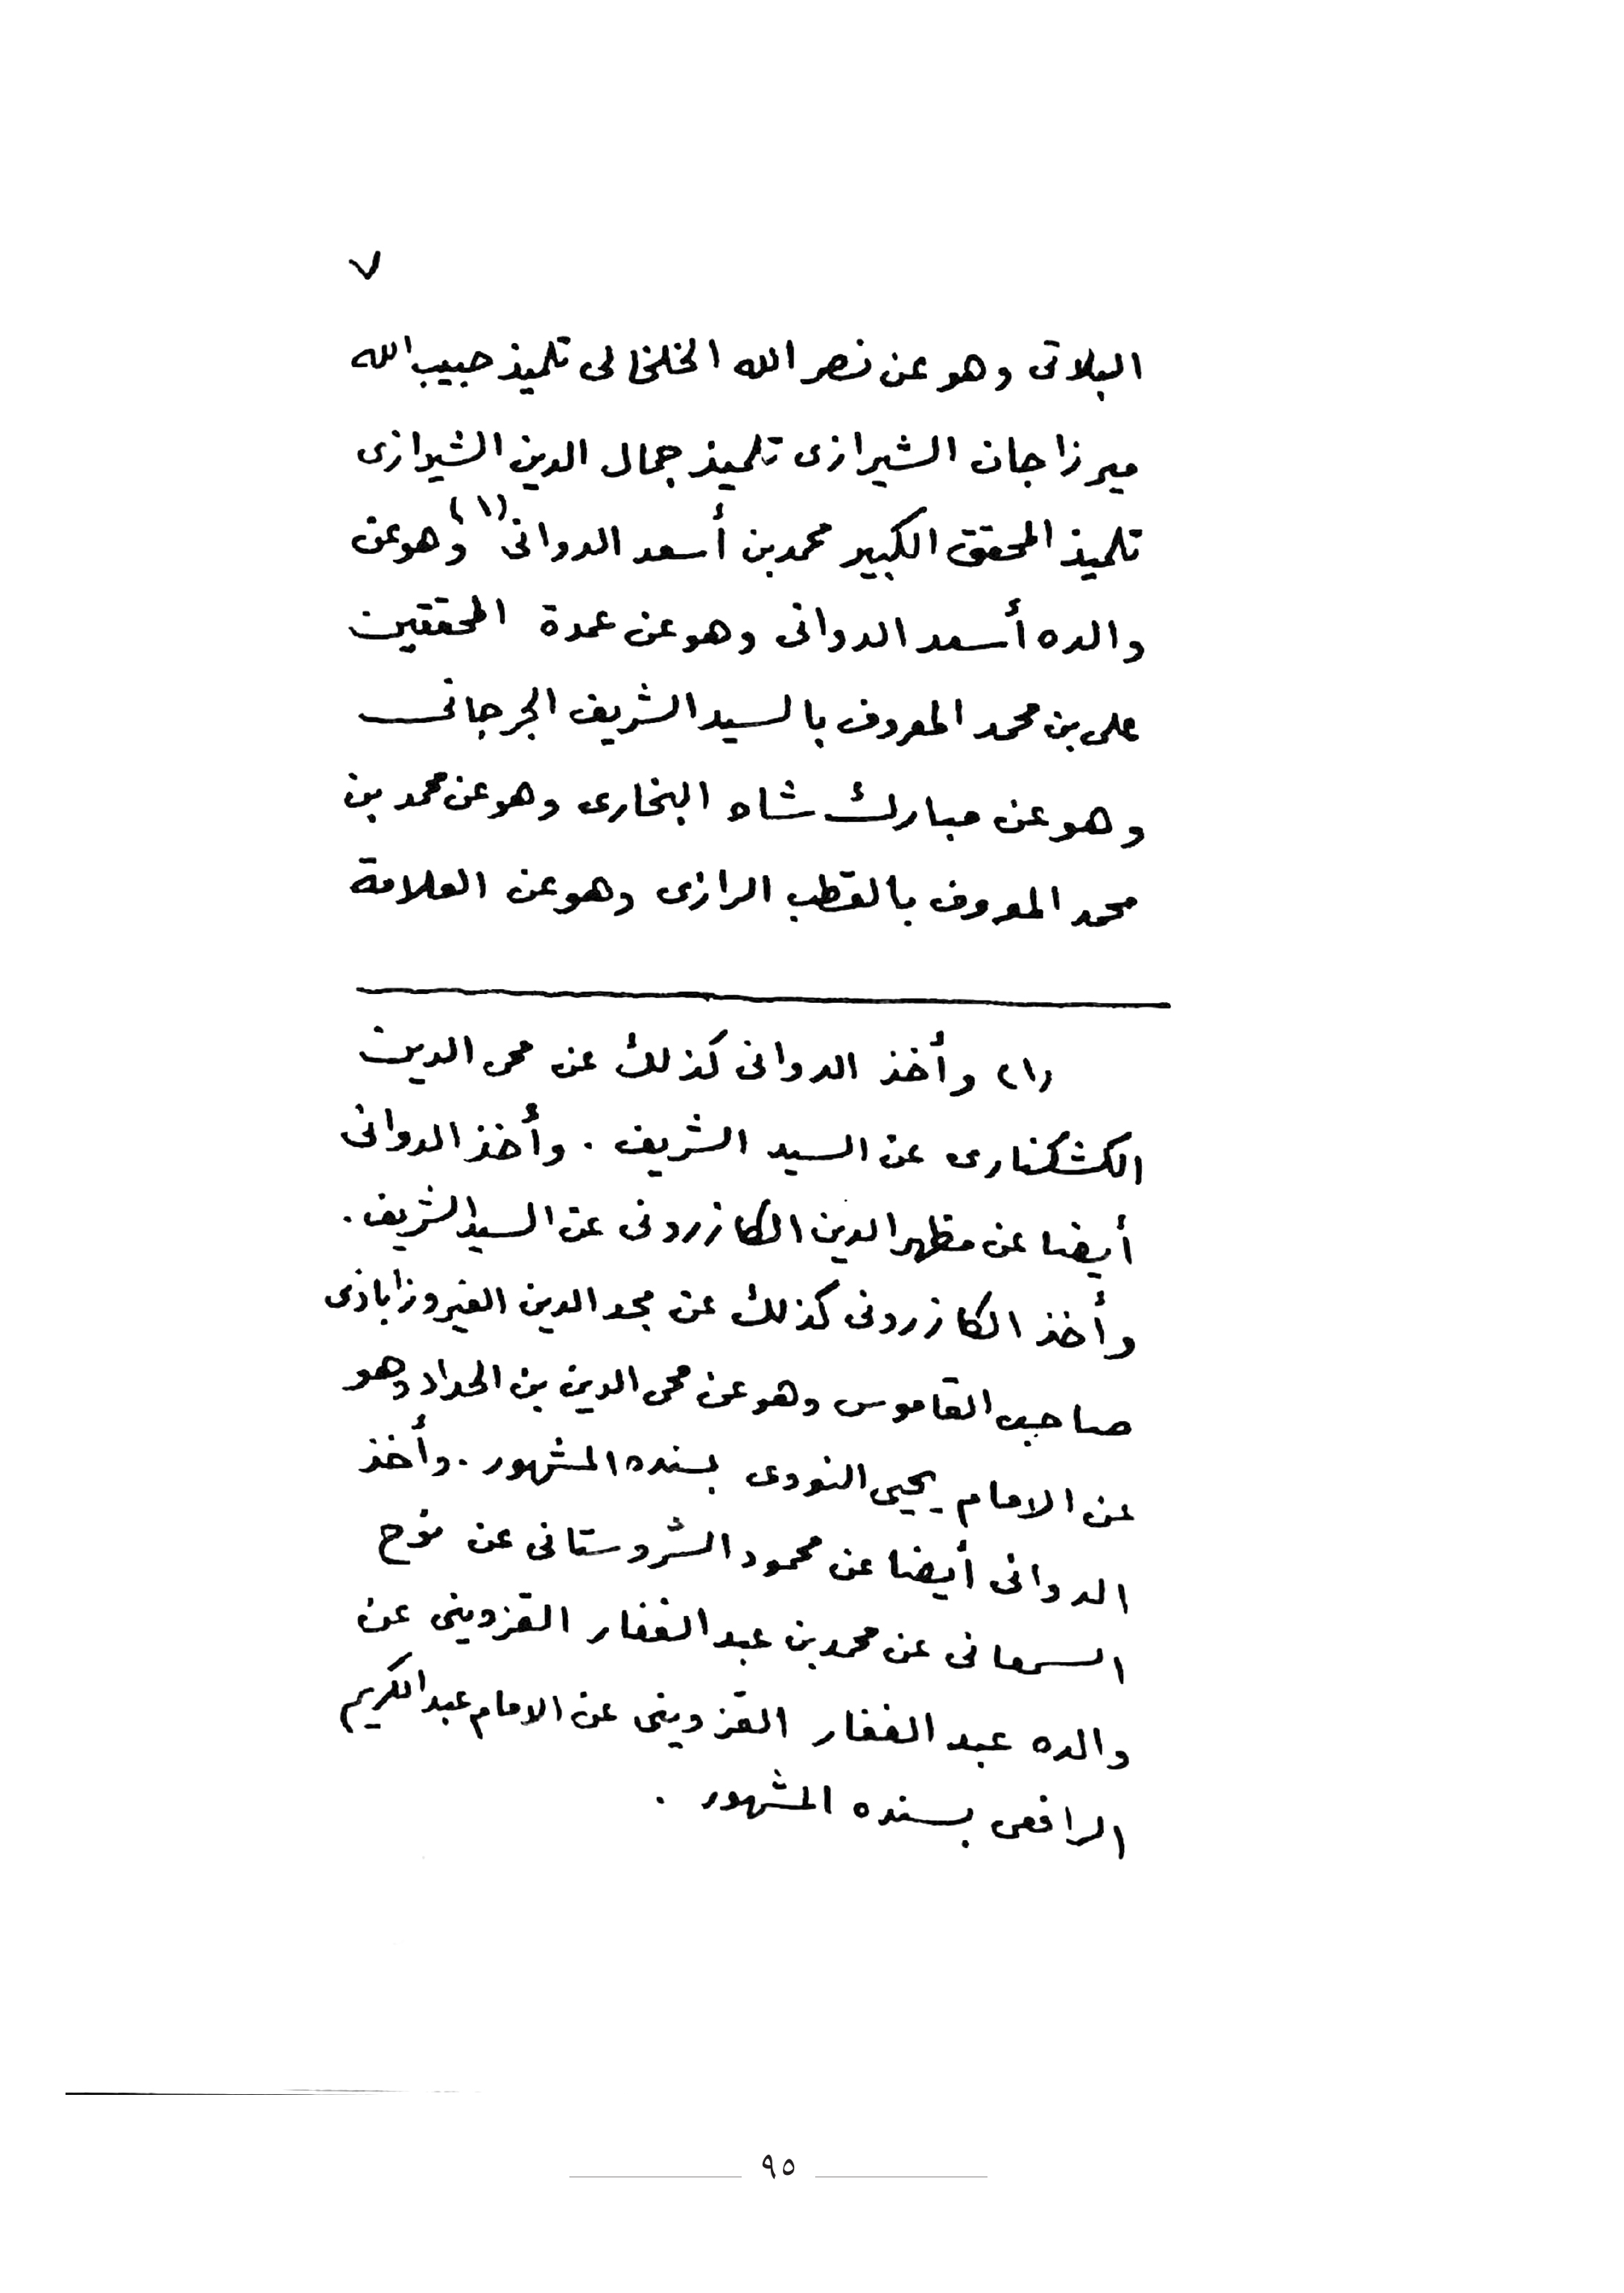 ٧
البلاتى وهو عن نصر الله الخلخالى تلميذ حبيب الله
ميرزاجان الشيرازى تلميذ جمال الدين الشيرازى
تلميذ المحقق الكبير محمد بن أسعد الدوانى (١) وهو عن
والده أسعد الدوانى وهو عن عمدة المحققين
على بن محمد المعروف بالسيد الشريف الجرجانى
وهو عن مبارك شاه البخارى وهو عن محمد بن
محمد المعروف بالقطب الرازى وهو عن العلامة
(١) وأخذ الدوانى كذلك عن محى الدين
الكشكنارى عن السيد الشريف . وأخذ الدوانى
أيضا عن مظهر الدين الكازرونى عن السيد الشريف .
وأخذ الكازرونى كذلك عن مجد الدين الفيروزاباذى
صاحب القاموس وهو عن محى الدين بن الحداد وهو
عن الامام يحيى النووى بسنده المشهور . وأخذ
الدوانى أيضا عن محمود الشروستانى عن نوح
السمعانى عن محمد بن عبد الغفار القزوينى عن
والده عبد الغفار القزوينى عن الامام عبد الكريم
الرافعى بسنده المشهور .
٩٥